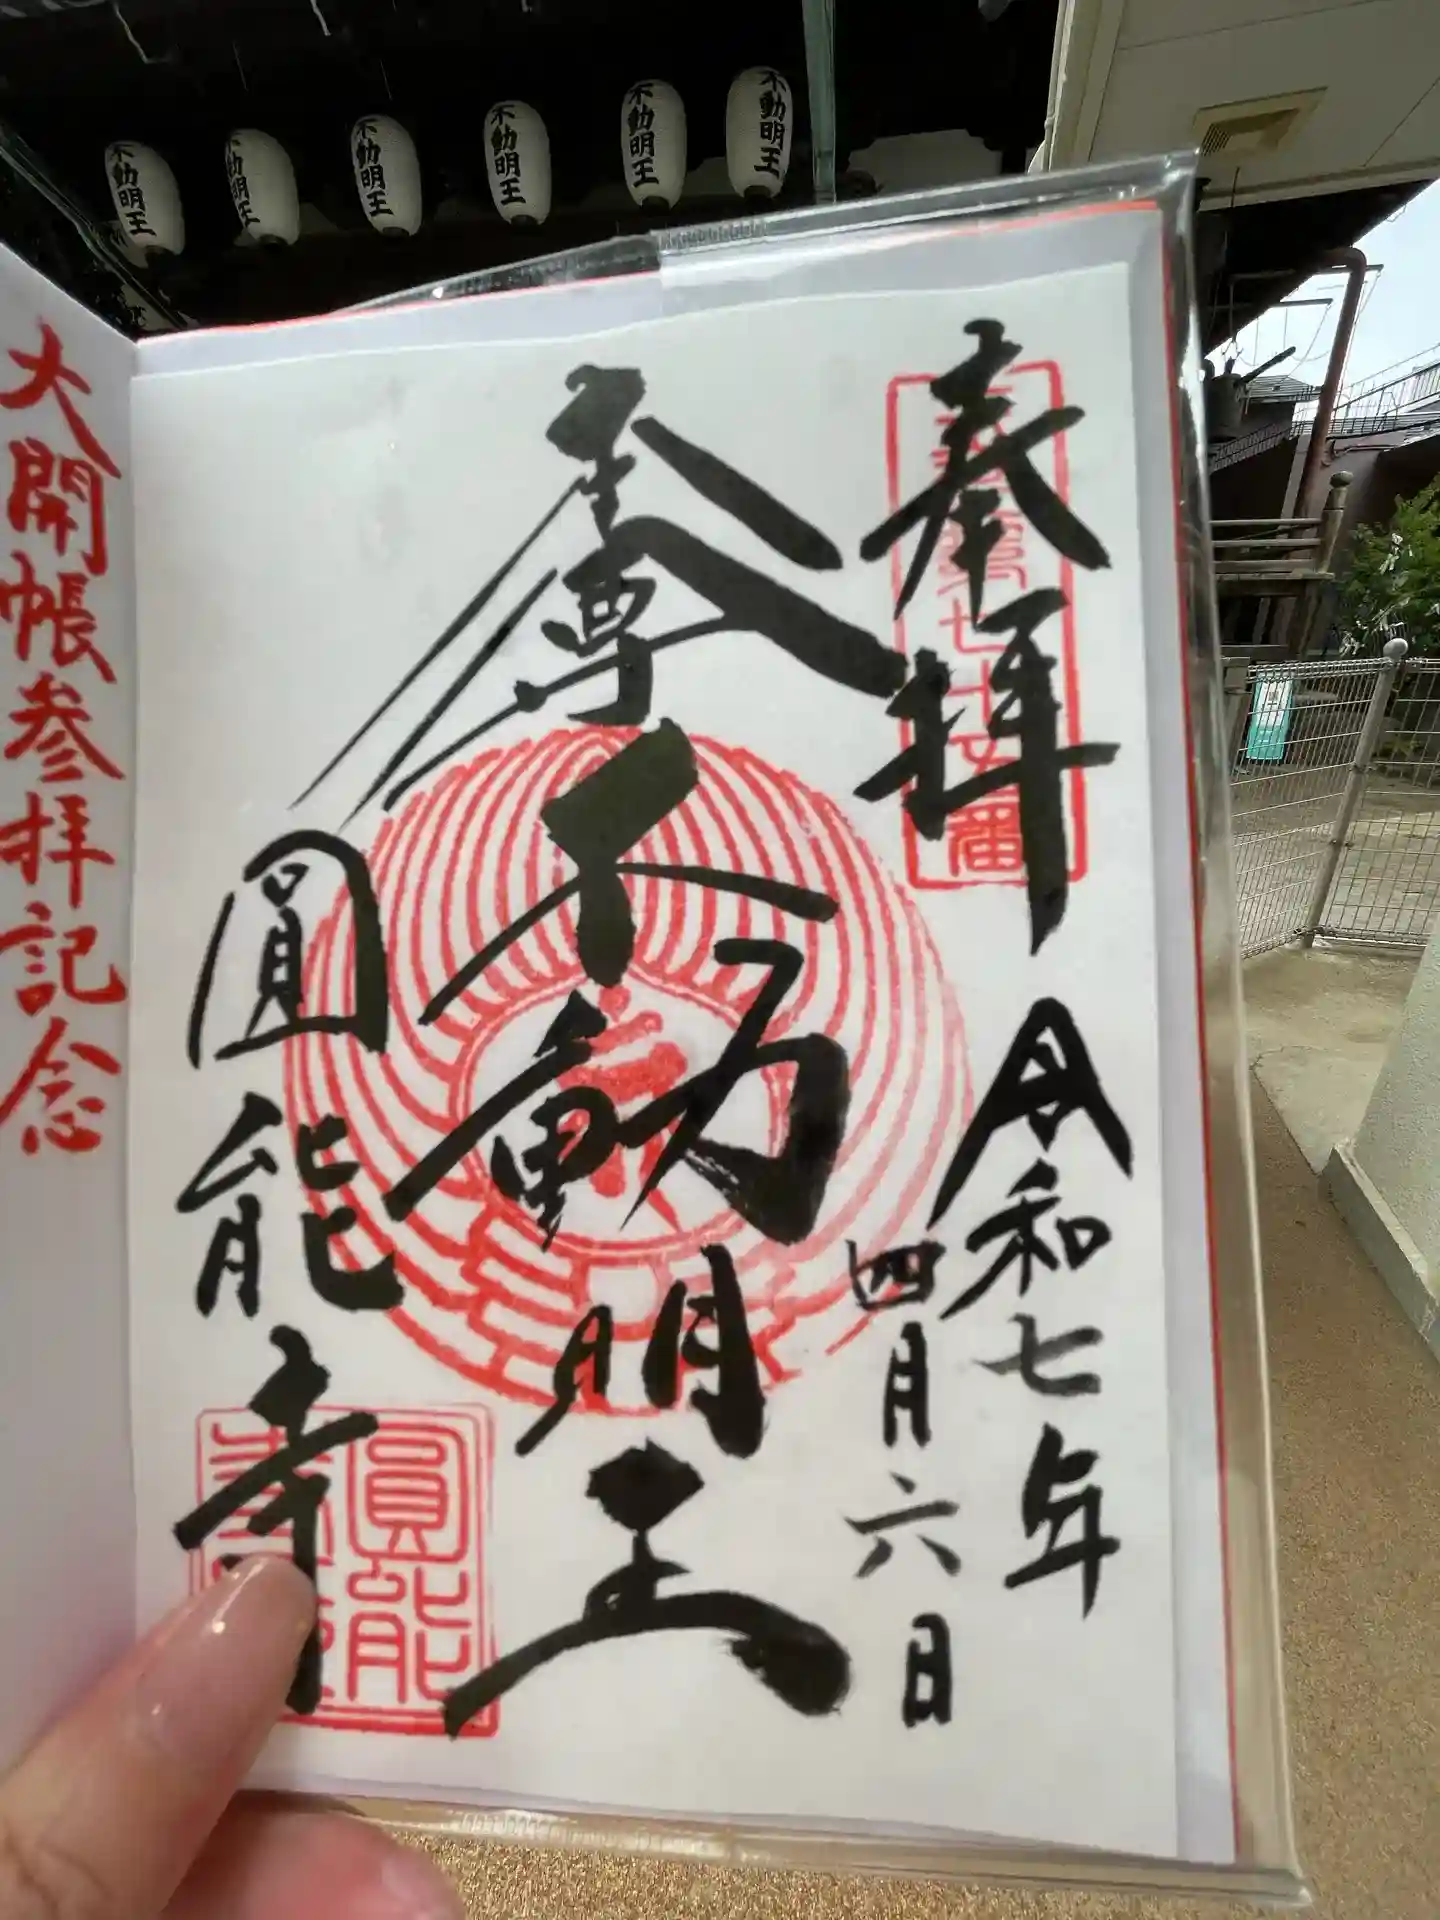 不動明王
不動明王
不動明王
不動明王
不動明王
不動明王
奉拝
七十五番
令和七年
四月六日
本尊
不動明王
圓能寺
圓能
大開帳参拝記念